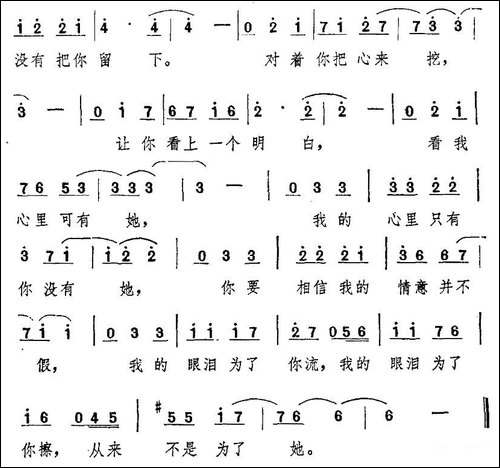 1 2 2 1 | 4 · 4 | 4 — | 0 2 1 | 7 1 2 7 | 7 3 3 |
没有把你留下。 对着你把心来挖，
3 — | 0 1 7 | 6 7 1 6 | 2 · 2 | 2 — | 0 2 1 |
让你看上一个明白， 看我
7 6 5 3 | 3 3 3 | 3 — | 0 3 3 | 3 3 2 2 |
心里可有她， 我的心里只有
3 7 1 | 1 2 2 | 0 3 3 | 2 2 2 1 | 3 6 6 7 |
你没有她， 你要相信我的情意并不
7 1 1 | 0 3 3 | 1 1 1 7 | 2 7 0 5 6 | 1 1 7 6 |
假， 我的眼泪为了你流，我的眼泪为了
1 6 0 4 5 | #5 5 1 7 | 7 6 6 | 6 — ‖
你擦， 从来不是为了她。